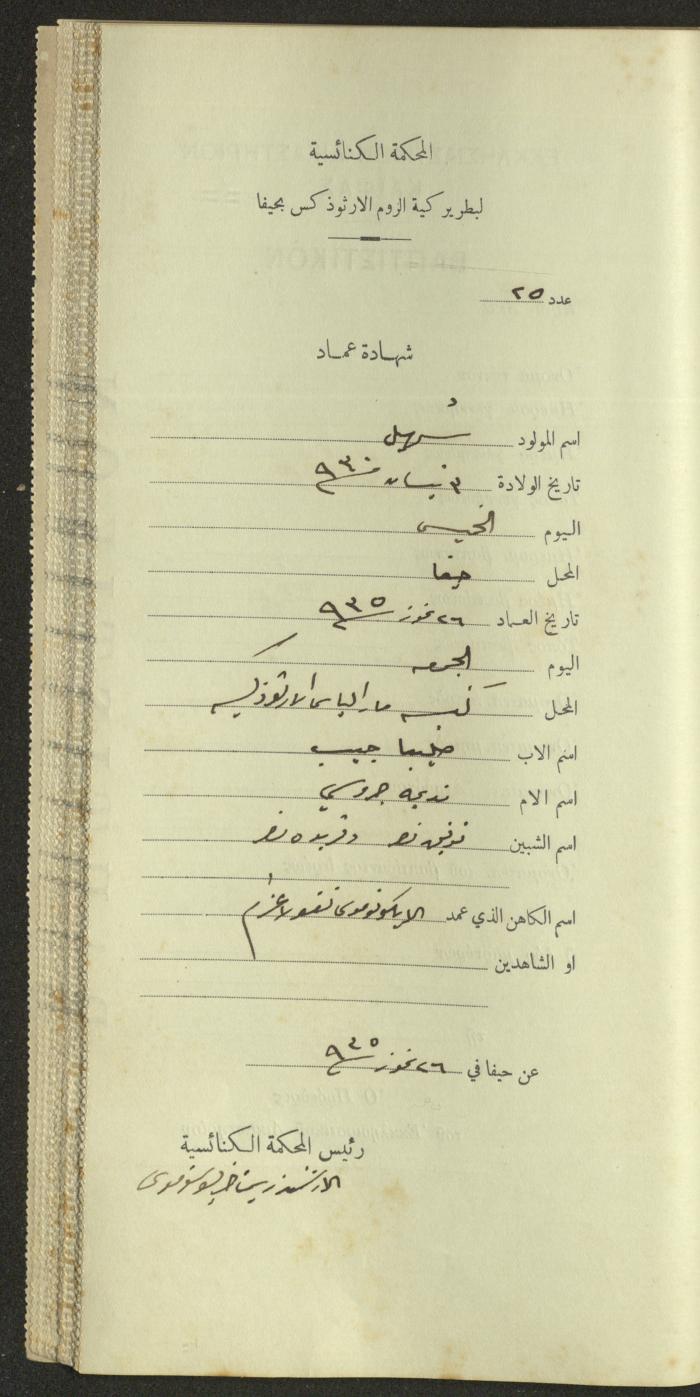 المحكمة الكنائسية
لبطريركية الروم الارثوذكس بحيفا
عدد ٢٥
شهادة عماد
اسم المولود سهيل
تاريخ الولادة ٣ نيسان ٩٣٠
اليوم الخميس
المحل حيفا
تاريخ العماد ٢٦ تموز ٩٣٥
اليوم الجمعه
المحل كنيسه مار الياس الارثوذكسيه
اسم الاب حبيب
اسم الام نديمه
اسم الشبين توفيق نصر وفريده نصر
اسم الكاهن الذي عمد الايكونوموس نقولا
او الشاهدين
عن حيفا في ٢٦ تموز ٩٣٥
رئيس المحكمة الكنائسية